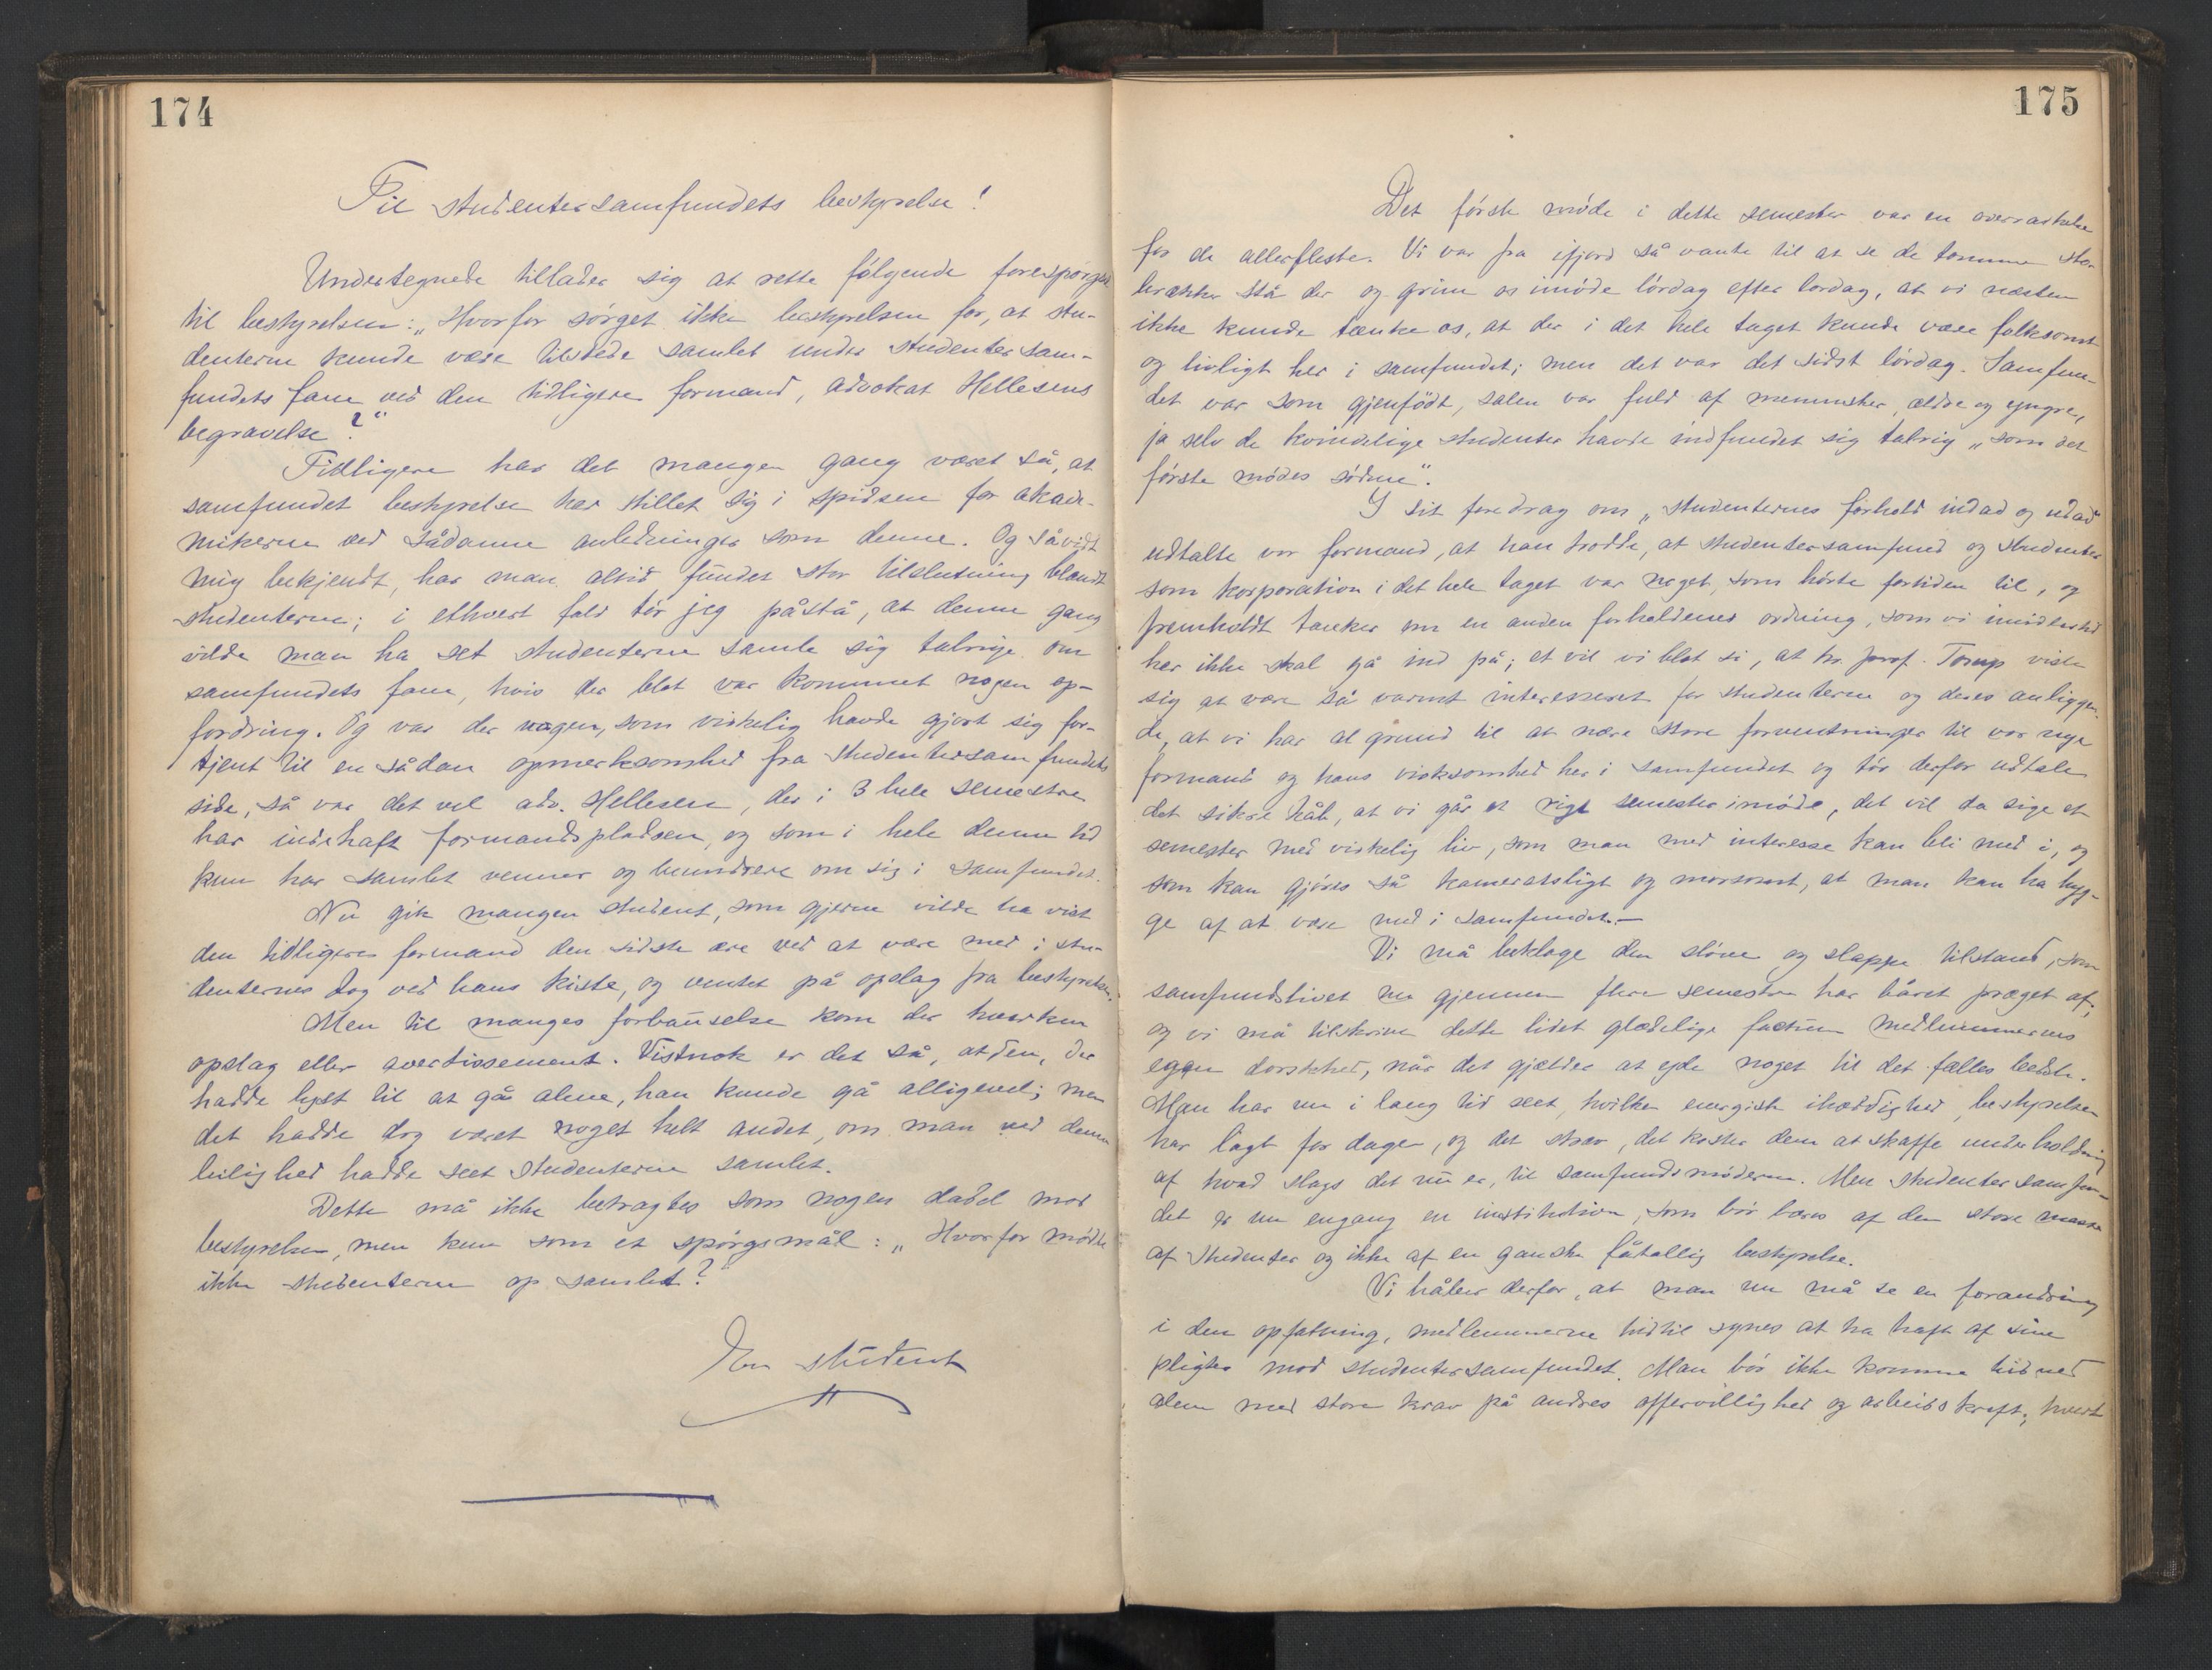 174
Til studentersamfundets bestyrelse!
Undertegnede tillader sig at rette følgende forespørgsel
til bestyrelsen: „Hvorfor sørget ikke bestyrelsen for, at stu-
denterne kunde være tilstede samlet under studentersam-
fundets fane ved den tidligere formand, advokat Hellesens
begravelse?“
Tidligere har det mangen gang været så, at
samfundet bestyrelse har stillet sig i spidsen for akade-
mikerne ved sådanne anledninger som denne. Og såvidt
mig bekjendt, har man altid fundet stor tilslutning blandt
studenterne; i ethvert fald tør jeg påstå, at denne gang
vilde man ha set studenterne samle sig talrige om
samfundets fane, hvis der blot var kommet nogen op-
fordring. Og var der nogen, som virkelig havde gjort sig for-
tjent til en sådan opmerksomhed fra studentersamfundets
side, så var det vel adv. Hellesen, der i 3 hele semestre
har indehaft formandspladsen, og som i hele denne tid
kun har samlet venner og beundrere om sig i samfundet.
Nu gik mangen student, som gjerne vilde ha vist
den tidligere formand den sidste ære ved at være med i stu-
denternes tog ved hans kiste, og ventet på opslag fra bestyrelsen.
Men til manges forbauselse kom der hverken
opslag eller avertissement. Vistnok er det så, at den, der
hadde lyst til at gå alene, han kunde gå alligevel; men
det hadde dog været noget helt andet, om man ved denne
leilighed hadde seet studenterne samlet.
Dette må ikke betragtes som nogen dadel mod
bestyrelsen, men kun som et spørgsmål: „Hvorfor mødte
ikke studenterne op samlet?
En student
175
Det første møde i dette semester var en overraskelse
for de allerfleste. Vi var fra ifjord så vante til at se de tomme stol-
erækker stå der og grine os imøde lørdag efter lørdag, at vi næsten
ikke kunde tænke os, at der i det hele taget kunde være folksomt
og livligt her i samfundet; men det var det sidst lørdag. Samfun-
det var som gjenfødt, salen var fuld af mennesker, ældre og yngre,
ja selv de kvindelige studenter havde indfundet sig talrig „som det
første mødes sødme“.
I sit foredrag om „studenternes forhold indad og udad“
udtalte vor formand, at han trodde, at studentersamfund og studenter
som korporation i det hele taget var noget, som hørte fortiden til, og
fremholdt tanker om en anden forholdenes ordning, som vi imidlertid
her ikke skal gå ind på; et vil vi blot si, at hr. prof. Torup viste
sig at være så varmt interesseret for studenterne og deres anliggen-
de, at vi har al grund til at nære store forventninger til vor nye
formand og hans virksomhed her i samfundet og tør derfor udtale
det sikre håb, at vi går et rigt semester imøde, det vil da sige et
semester med virkelig liv, som man med interesse kan bli med i, og
som kan gjøres så kameratsligt og morsomt, at man kan ha hyg-
ge af at være med i samfundet.—
Vi må beklage den sløve og slappe tilstand, som
samfundslivet nu gjennem flere semestre har båret præget af;
og vi må tilskrive dette lidet glædelige factum medlemmernes
egen dorskhed, når det gjælder at yde noget til det fælles bedste.
Man har nu i lang tid seet, hvilken energisk ihærdighed bestyrelsen
har lagt for dagen, og det stræv, det koster dem at skaffe underholdning
af hvad slags det nu er, til samfundsmøderne. Men studentersamfun-
det er nu engang en institution, som bør bæres af den store masse
af studenter og ikke af en ganske fåtallig bestyrelse.
Vi håber derfor, at man nu må se en forandring
i den opfatning, medlemmerne hidtil synes at ha haft af sine
pligter mod studentersamfundet. Man bør ikke komme hid ned
alene med store krav på andres offervillighed og arbeidskraft; hvert